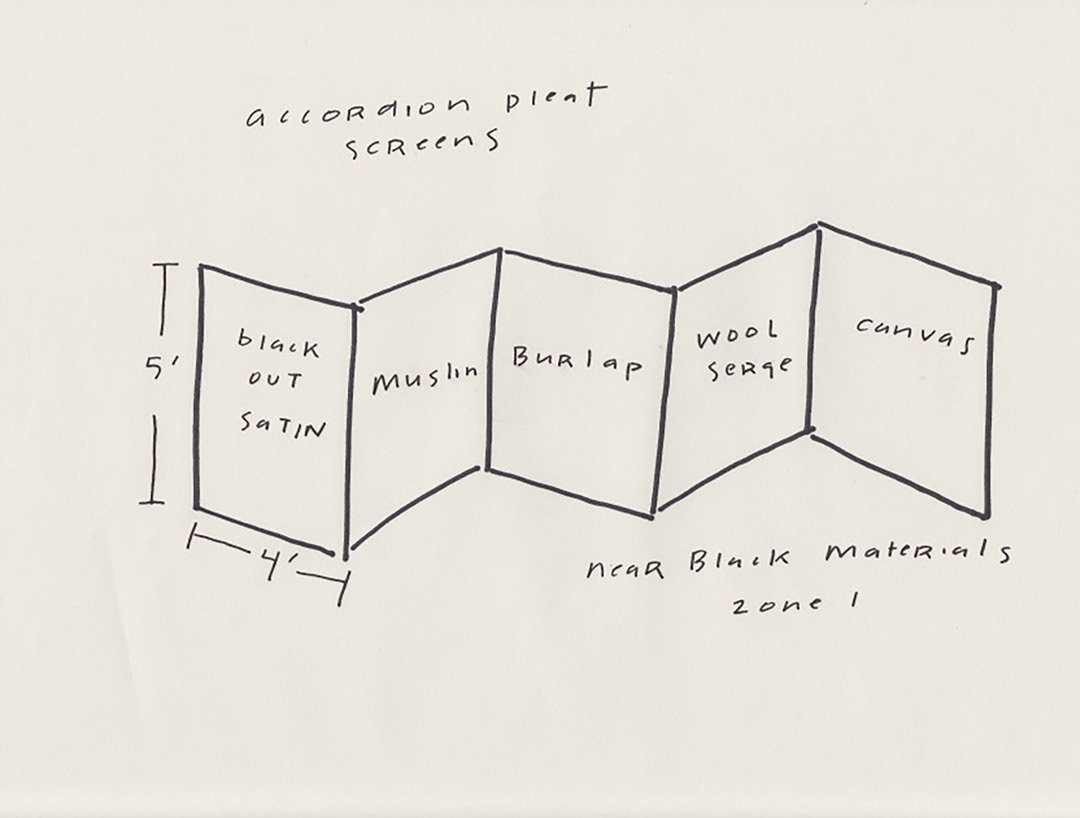 accordion pleat
screens
5'
black
out
satin
Muslin
Burlap
wool
serge
canvas
4'
near Black materials
zone 1